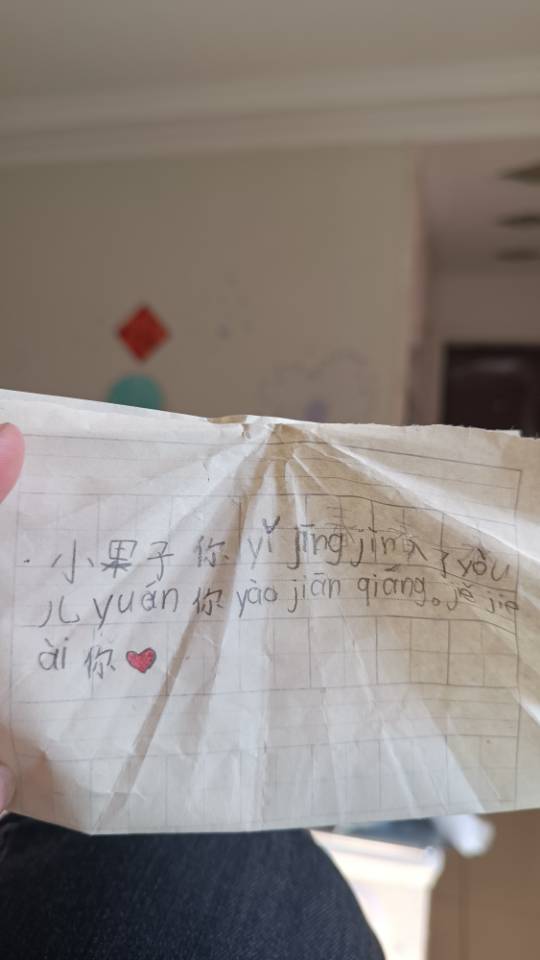 小果子你 yǐ jīng jìn 入了 yòu
儿 yuán 你 yào jiān qiáng。jě jie
ài 你